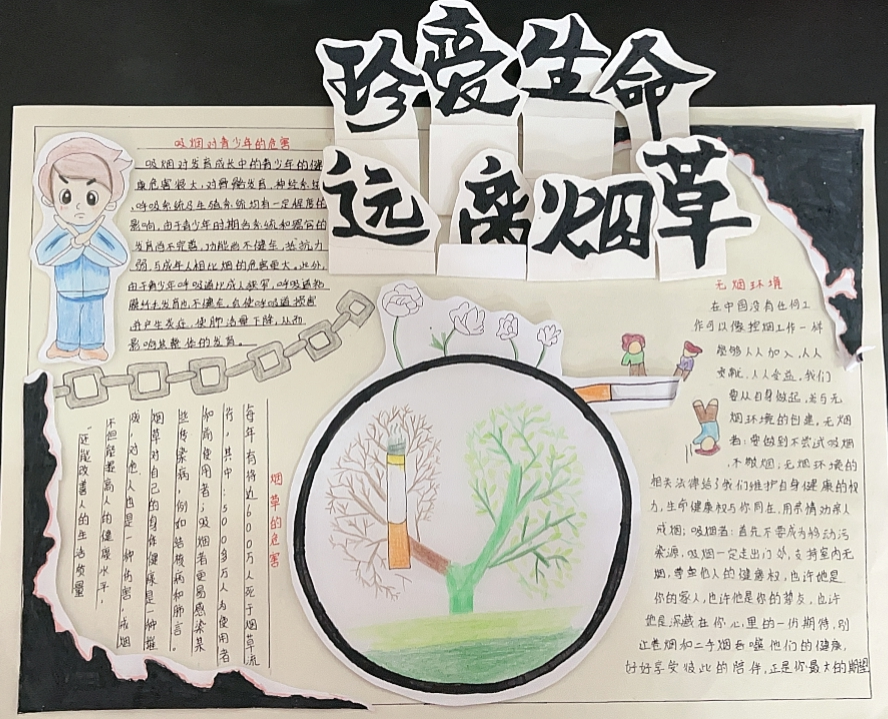 珍爱生命
远离烟草
吸烟对青少年的危害
吸烟对发育成长中的青少年的健
康危害很大,对骨骼发育,神经系统
呼吸系统及生殖系统均有一定程度的
影响,由于青少年时期各系统和器官的
发育尚不完善,功能尚不健全,抵抗力
弱,与成年人相比烟的危害更大。此外,
由于青少年呼吸道比成人狭窄,呼吸道粘
膜纤毛发育尚不健全,会使呼吸道损害
并产生炎症,使肺活量下降,从而
影响其整体的发育。
烟草的危害
每年有将近600万人死于烟草流
行,其中:500多万人为使用者
和前使用者;吸烟者更易感染某
些传染病,例如结核病和肺炎。
烟草对自己的身体健康是一种摧
残,对他人也是一种伤害,戒烟
不但能提高人的健康水平,
还能改善人的生活质量
无烟环境
在中国没有任何工
作可以像控烟工作一样
能够人人加入,人人
贡献,人人受益,我们
要从自身做起,参与无
烟环境的创建,无烟
者:要做到不尝试吸烟
,不敬烟,无烟环境的
相关法律给了我们维护自身健康的权
力,生命健康权与你同在,用亲情劝家人
戒烟;吸烟者:首先不要成为移动污
染源,吸烟一定走出门外,支持室内无
烟,尊重他人的健康权,也许他是
你的家人,也许他是你的挚友,也许
他是深藏在你心里的一份期待,别
让卷烟和二手烟吞噬他们的健康,
好好享受彼此的陪伴,正是你最大的期望